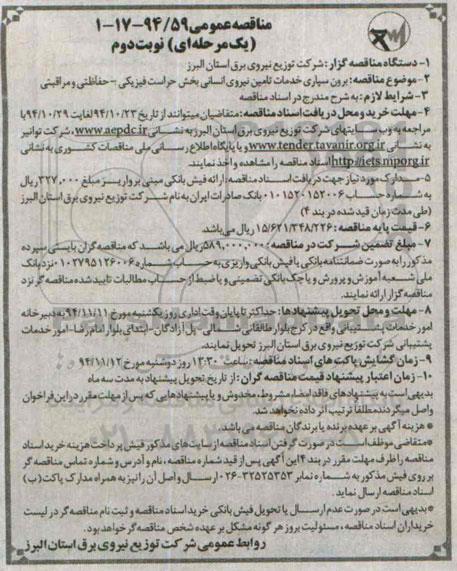 مناقصه عمومی ۹۴/۵۹-۱۷-۱
(یک مرحله ای) نوبت دوم
۱- دستگاه مناقصه گزار: شرکت توزیع نیروی برق استان البرز
۲- موضوع مناقصه: برون سپاری خدمات تامین نیروی انسانی بخش حراست فیزیکی - حفاظتی و مراقبتی
۳- شرایط لازم: به شرح مندرج در اسناد مناقصه
۴- مهلت خرید و محل دریافت اسناد مناقصه: متقاضیان میتوانند از تاریخ ۹۴/۱۰/۲۳ لغایت ۹۴/۱۰/۲۹ با
مراجعه به وب سایتهای شرکت توزیع نیروی برق استان البرز به نشانی www.aepdc.ir، شرکت توانیر
به نشانی www.tender.tavanir.org.ir و یا پایگاه اطلاع رسانی ملی مناقصات کشوری به نشانی
http://iets.mporg.ir اسناد مناقصه را مشاهده و اخذ نمایند.
۵- مدارک مورد نیاز جهت دریافت اسناد مناقصه: ارائه فیش بانکی مبنی بر واریز مبلغ ۳۲۷,۰۰۰ ریال
به شماره حساب ۰۱۰۱۵۲۰۱۵۲۰۰۶ بانک صادرات ایران به نام شرکت توزیع نیروی برق استان البرز
(طی مدت زمان قید شده در بند ۴)
۶- قیمت پایه مناقصه: ۱۵/۶۲۱/۳۴۸/۲۲۶ ریال می باشد.
۷- مبلغ تضمین شرکت در مناقصه: ۵۸۹,۰۰۰,۰۰۰ ریال می باشد که مناقصه گران بایستی سپرده
مذکور را به صورت ضمانتنامه بانکی یا فیش بانکی واریزی به حساب شماره ۰۱۰۲۷۹۵۱۲۶۰۰۶ نزد بانک
ملی شعبه آموزش و پرورش و یا چک بانکی تضمینی و یا ضبط از حساب مطالبات تایید شده مناقصه گر نزد
مناقصه گزار ارائه نمایند.
۸- مهلت و محل تحویل پیشنهادها: حداکثر تا پایان وقت اداری روز یکشنبه مورخ ۹۴/۱۱/۱۱ به دبیرخانه
امور خدمات پشتیبانی واقع در کرج بلوار طالقانی شمالی - پل آزادگان - ابتدای بلوار امام رضا - امور خدمات
پشتیبانی شرکت توزیع نیروی برق استان البرز تحویل نمایند.
۹- زمان گشایش پاکت های اسناد مناقصه: ساعت ۱۳:۳۰ روز دوشنبه مورخ ۹۴/۱۱/۱۲
۱۰- زمان اعتبار پیشنهاد قیمت مناقصه گران: از تاریخ تحویل پیشنهاد به مدت سه ماه
بدیهی است به پیشنهادهای فاقد امضا، مشروط، مخدوش و یا پیشنهادهایی که پس از مهلت مقرر در این فراخوان
واصل میگردند مطلقا ترتیب اثر داده نخواهد شد.
* هزینه آگهی بر عهده برنده یا برندگان مناقصه می باشد.
* متقاضی موظف است در صورت گرفتن اسناد مناقصه از سایت های مذکور فیش پرداخت هزینه خرید اسناد
مناقصه را ظرف مهلت مقرر در بند ۴ این آگهی پس از قید شماره مناقصه، نام و آدرس و شماره تماس مناقصه گر
بر روی فیش مذکور به شماره نمابر ۳۲۵۲۵۳۵۳-۰۲۶ ارسال و اصل آن را نیز به همراه مدارک پاکت (ب)
اسناد مناقصه ارسال نماید.
بدیهی است در صورت عدم ارسال یا تحویل فیش بانکی خرید اسناد مناقصه و ثبت نام مناقصه گر در لیست
خریداران اسناد مناقصه، مسئولیت بروز هر گونه مشکل بر عهده شخص مناقصه گر خواهد بود.
روابط عمومی شرکت توزیع نیروی برق استان البرز